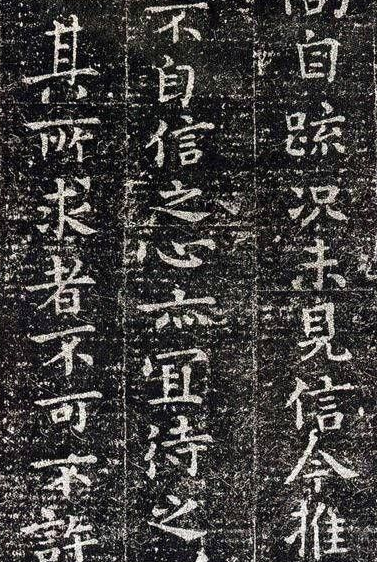 自踈况未見信今推
不自信之心亦冝待之
其所求者不可不許